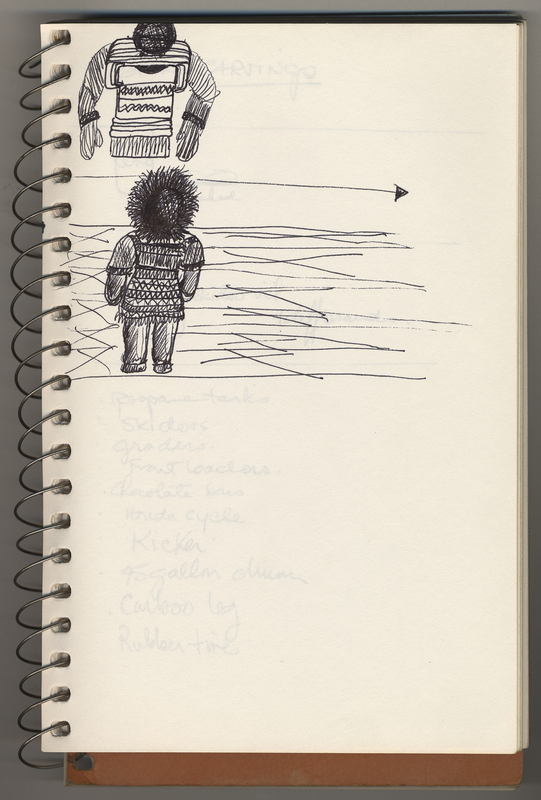 CARVINGS
Propane tanks
Skidoos
graders
Front loaders.
Chocolate bars
Honda cycle
Kicker
45 gallon drum
Caribou leg
Rubber tire